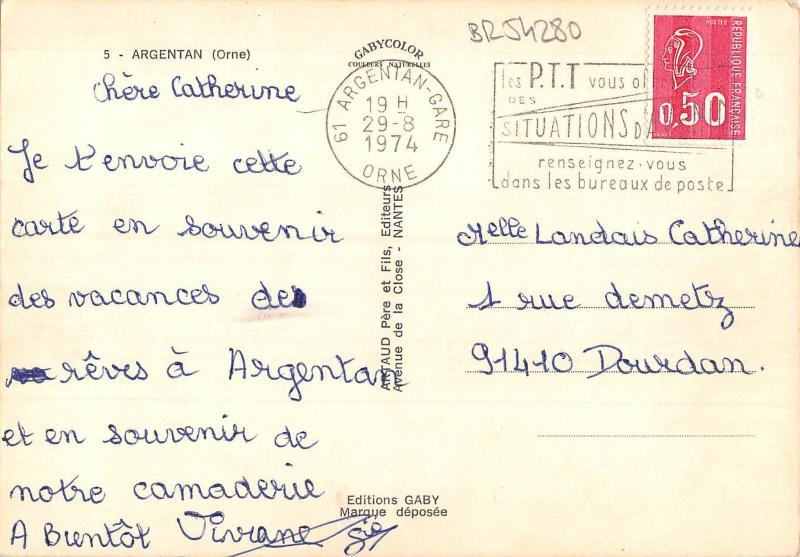 BR54280
5 - ARGENTAN (Orne)
GABYCOLOR
COULEURS NATURELLES
chère Catherine
Je t'envoie cette
carte en souvenir
des vacances de
rêves à Argentan
et en souvenir de
notre camaderie
A Bientôt Viviane
61 ARGENTAN-GARE
19 H
29-8
1974
ORNE
les P.T.T vous of
DES
SITUATIONS D'A
renseignez-vous
dans les bureaux de poste
POSTES
REPUBLIQUE FRANÇAISE
0,50
ARTAUD Père et Fils, Editeurs
Avenue de la Close - NANTES
Melle Landais Catherine
1 rue demetz
91410 Dourdan.
Editions GABY
Marque déposée